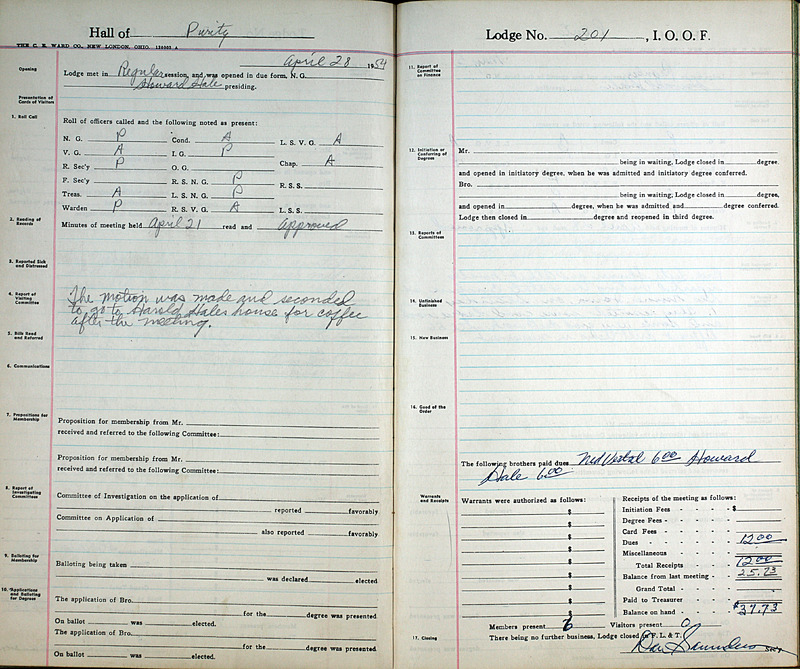 Hall of Purity
THE C. E. WARD CO., NEW LONDON, OHIO. 130003 A
April 28 1954
Opening
Lodge met in Regular session, and was opened in due form, N. G.
Howard Hale presiding.
Presentation of Cards of Visitors
1. Roll Call
Roll of officers called and the following noted as present:
N. G. P Cond. A L. S. V. G. A
V. G. A I. G. P
R. Sec'y P O. G. Chap. A
F. Sec'y R. S. N. G. P R. S. S.
Treas. A L. S. N. G. P
Warden P R. S. V. G. A L. S. S.
2. Reading of Records
Minutes of meeting held April 21 read and approved
3. Reported Sick and Distressed
4. Report of Visiting Committee
The motion was made and seconded
to go to Harold Hales house for coffee
after the meeting.
5. Bills Read and Referred
6. Communications
7. Propositions for Membership
Proposition for membership from Mr.
received and referred to the following Committee:
Proposition for membership from Mr.
received and referred to the following Committee:
8. Report of Investigating Committees
Committee of Investigation on the application of
reported favorably
Committee on Application of
also reported favorably
9. Balloting for Membership
Balloting being taken
was declared elected
10. Applications and Balloting for Degrees
The application of Bro.
for the degree was presented.
On ballot was elected.
The application of Bro.
for the degree was presented.
On ballot was elected.
Lodge No. 201, I. O. O. F.
11. Report of Committee on Finance
12. Initiation or Conferring of Degrees
Mr.
being in waiting, Lodge closed in degree.
and opened in initiatory degree, when he was admitted and initiatory degree conferred.
Bro.
being in waiting, Lodge closed in degree,
and opened in degree, when he was admitted and degree conferred.
Lodge then closed in degree and reopened in third degree.
13. Reports of Committees
14. Unfinished Business
15. New Business
16. Good of the Order
The following brothers paid dues 6 00 Howard
Hale 6 00
Warrants and Receipts
Warrants were authorized as follows:
$
$
$
$
$
$
$
$
$
Receipts of the meeting as follows:
Initiation Fees - $
Degree Fees
Card Fees
Dues 12 00
Miscellaneous
Total Receipts 12 00
Balance from last meeting 25.73
Grand Total
Paid to Treasurer
Balance on hand $37.73
Members present 6 Visitors present 0
17. Closing
There being no further business, Lodge closed in F. L. & T.
Don Saunders Sec'y